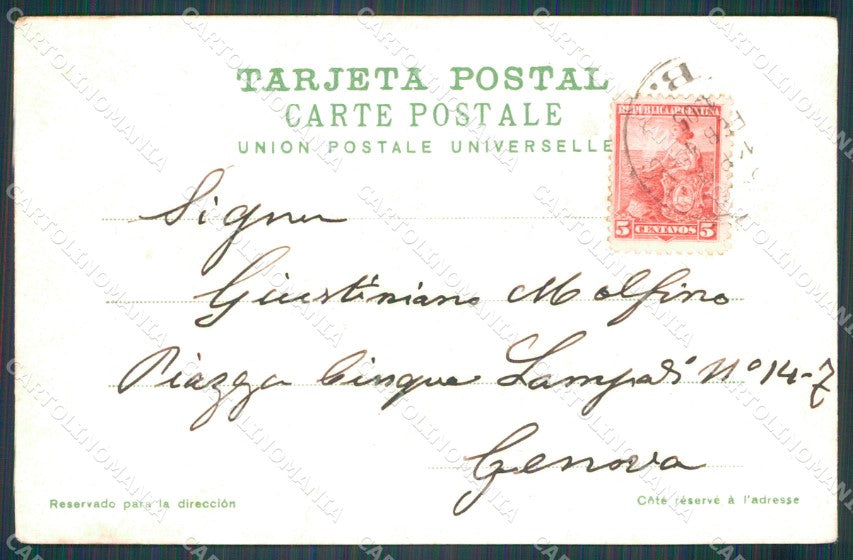 TARJETA POSTAL
CARTE POSTALE
UNION POSTALE UNIVERSELLE
REPUBLICA ARGENTINA
5 CENTAVOS 5
Signor
Giustiniano Molfino
Piazza Cinque Lampadi No 14-7
Genova
Reservado para la dirección
Côté réservé à l'adresse
CARTOLINOMANIA